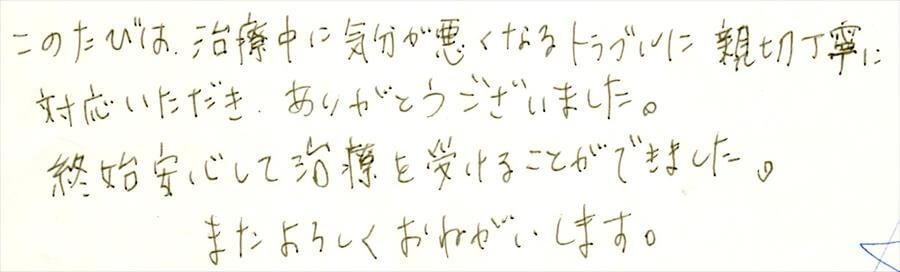 このたびは、治療中に気分が悪くなるトラブルに親切丁寧に
対応いただき、ありがとうございました。
終始安心して治療を受けることができました。
またよろしくおねがいします。